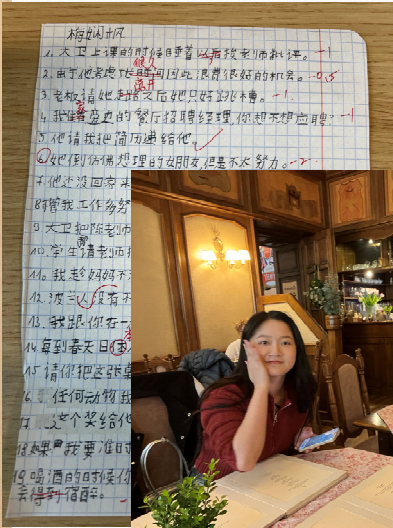 梅娴枫
1. 大卫上课的时候睡着以后被老师批评。 -1
很久
2. 由于他考虑 时间因此浪费很好的机会。 -0,5
离开
3. 老板请她 之后她只好跳槽。 -1
4. 我 的餐厅招聘经理,你想不想应聘? -1
5. 他请我把简历递给他。
6. 她倒仿佛想理的女朋友,但是不太努力。 -2
7. 他还没回家
8. 管我工作多努
9. 大卫把陈老师
10. 学生请老师
11. 我 妈妈不
12. 波兰人没有不
13. 我跟你在一
14. 每到春天日
15. 请你把这张桌
16. 任何动物我
17. 这个奖给他
18. 如果 我要准时
19. 喝酒的时候你
会得到宿醉。